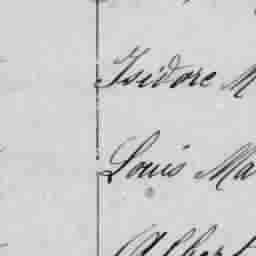 Isidore M
Louis Ma
Albert